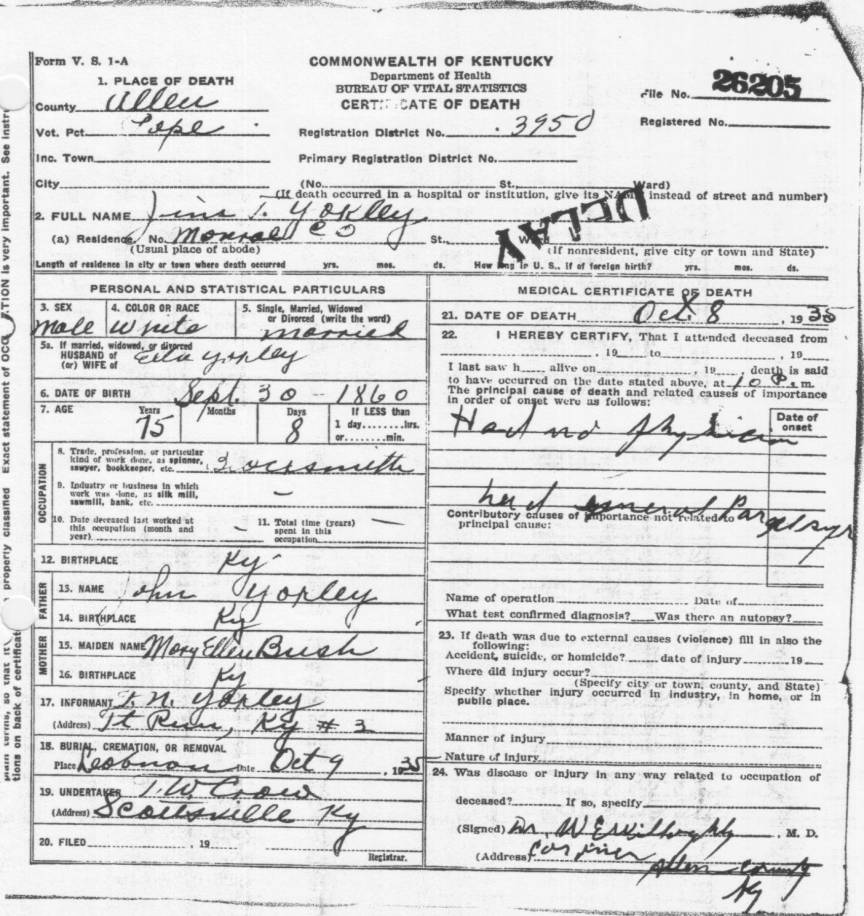 Form V. S. 1-A
COMMONWEALTH OF KENTUCKY
Department of Health
BUREAU OF VITAL STATISTICS
CERTIFICATE OF DEATH
File No. 26205
Registered No.
1. PLACE OF DEATH
County Allen
Vot. Pct. Pope
Registration District No. 3950
Inc. Town
Primary Registration District No.
City
(No. St., Ward)
(If death occurred in a hospital or institution, give its NAME instead of street and number)
DELAY
2. FULL NAME Jim T. Yokley
(a) Residence. No. Monroe Co St., Ward
(Usual place of abode) (If nonresident, give city or town and State)
Length of residence in city or town where death occurred yrs. mos. ds. How long in U. S., if of foreign birth? yrs. mos. ds.
PERSONAL AND STATISTICAL PARTICULARS
3. SEX 4. COLOR OR RACE 5. Single, Married, Widowed or Divorced (write the word)
Male White Married
5a. If married, widowed, or divorced
HUSBAND of
(or) WIFE of Yokley
6. DATE OF BIRTH Sept. 30 - 1860
7. AGE Years Months Days If LESS than
75 8 1 day........hrs.
or........min.
OCCUPATION
8. Trade, profession, or particular
kind of work done, as spinner,
sawyer, bookkeeper, etc.
9. Industry or business in which
work was done, as silk mill,
sawmill, bank, etc. —
10. Date deceased last worked at
this occupation (month and
year) —
11. Total time (years)
spent in this
occupation —
12. BIRTHPLACE Ky
FATHER
13. NAME John Yokley
14. BIRTHPLACE Ky
MOTHER
15. MAIDEN NAME Mary Ellen Bush
16. BIRTHPLACE Ky
17. INFORMANT Yokley
(Address) Ft Run, Ky # 3
18. BURIAL, CREMATION, OR REMOVAL
Place Lebnon Date Oct 9, 1935
19. UNDERTAKER T.W. Crow
(Address) Scottsville Ky
20. FILED , 19
Registrar.
MEDICAL CERTIFICATE OF DEATH
21. DATE OF DEATH Oct. 8, 1935
22. I HEREBY CERTIFY, That I attended deceased from
, 19 to , 19
I last saw h alive on , 19 , death is said
to have occurred on the date stated above, at 10 P. m.
The principal cause of death and related causes of importance
in order of onset were as follows:
Date of
onset
Had no physician
had general
Contributory causes of importance not related to
principal cause:
Name of operation Date of
What test confirmed diagnosis? Was there an autopsy?
23. If death was due to external causes (violence) fill in also the
following:
Accident, suicide, or homicide? date of injury 19
Where did injury occur?
(Specify city or town, county, and State)
Specify whether injury occurred in industry, in home, or in
public place.
Manner of injury
Nature of injury
24. Was disease or injury in any way related to occupation of
deceased? If so, specify
(Signed) Dr. W E , M. D.
(Address) Coroner
Allen County
Ky